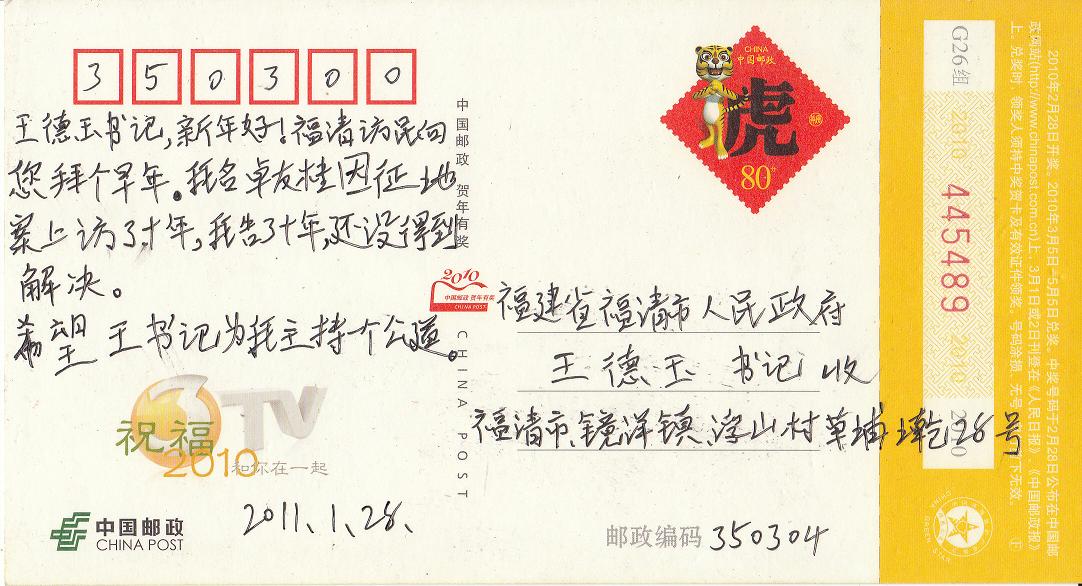 350300
王德玉书记，新年好！福清访民向
您拜个早年。我名卓友桂因征地
案上访了十年，我告了十年，还没得到
解决。
希望王书记为我主持一个公道。
祝福
2010
TV
和你在一起
中国邮政
CHINA POST
2011.1.28.
中国邮政 贺年有奖
2010
中国邮政 贺年有奖
CHINA POST
CHINA POST
CHINA
中国邮政
虎
80分
福建省福清市人民政府
王德玉 书记 收
福清市、镜洋镇、浮山村草埔墘28号
邮政编码 350304
G26组 2010 445489 2010
2010年2月28日开奖。2010年3月5日-5月5日兑奖。中奖号码于2月28日公布在中国邮
政网站(http://www.chinapost.com.cn)上，3月1日或2日刊登在《人民日报》《中国邮政报》
上。兑奖时，领奖人须持中奖贺卡及有效证件领奖。号码涂损、无号
下无效。